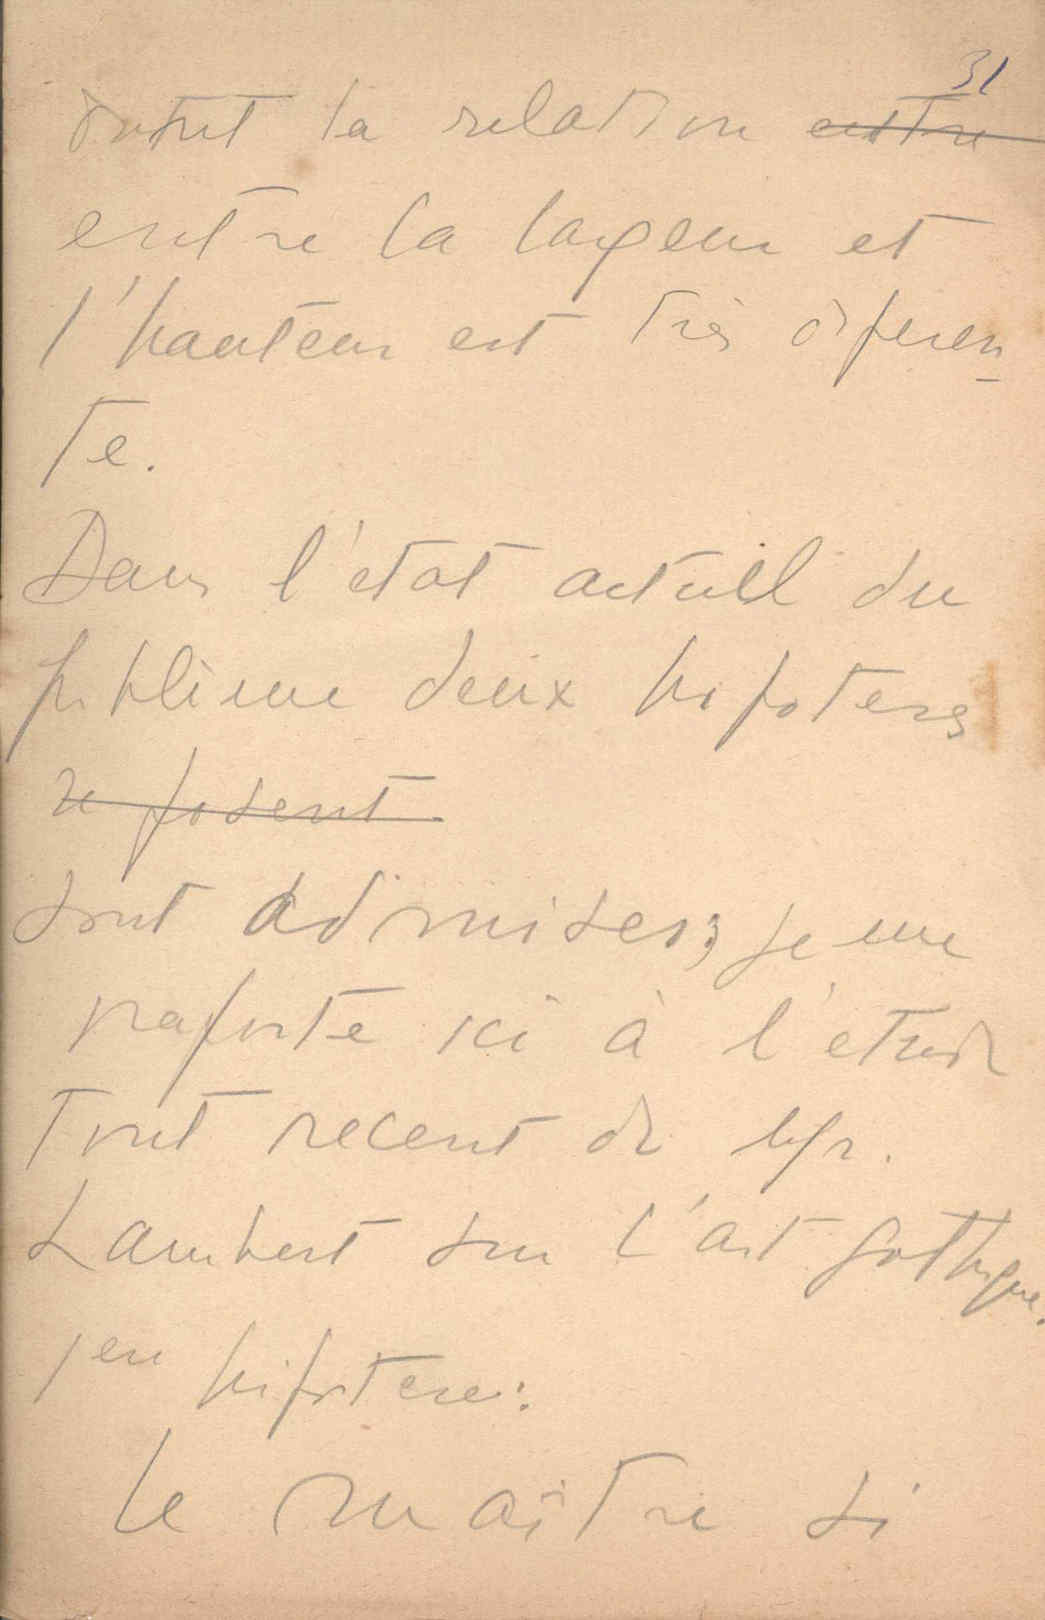 31
dont la relation entre
entre la lageur et
l'hauteur est très diferen-
te.
Dans l'etat actuell du
problème deux hipoteses
reposent
sont admises; je me
raporte ici à l'etude
tout recent de Mr.
Lambert sur l'art gothique.
1er hipotese:
le maître si